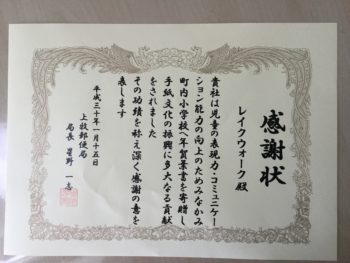 感謝状
レイクウォーク殿
貴社は児童の表現力・コミュニケー
ション能力の向上のためみなかみ
町内小学校へ年賀葉書を寄贈し
手紙文化の振興に多大なる貢献
をされました
その功績を称え深く感謝の意を
表します
平成三十年一月十五日
上牧郵便局
局長 星野 一志